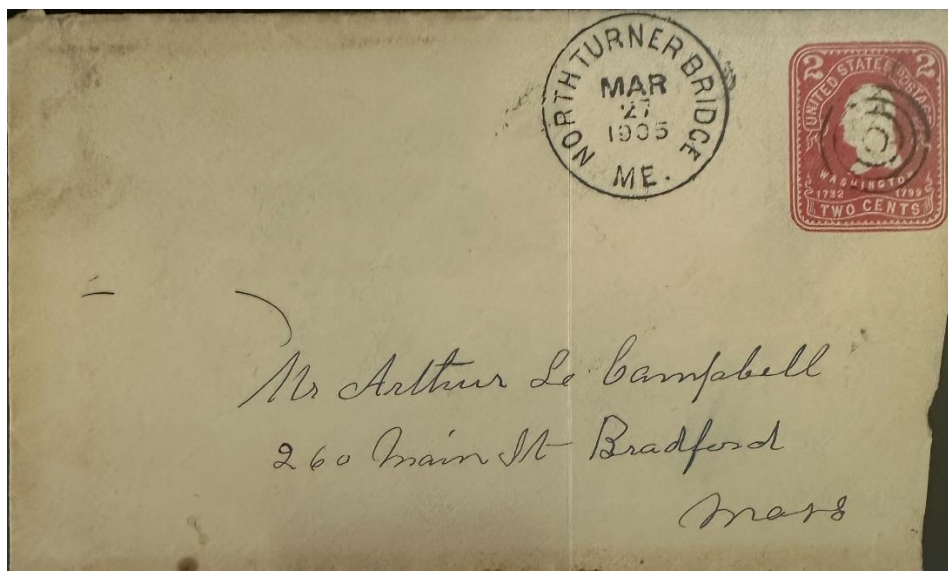 NORTH TURNER BRIDGE
MAR
27
1905
ME.
2 2
UNITED STATES POSTAGE
WASHINGTON
1732 1799
TWO CENTS
Mr Arthur Le Campbell
260 Main St Bradford
Mass